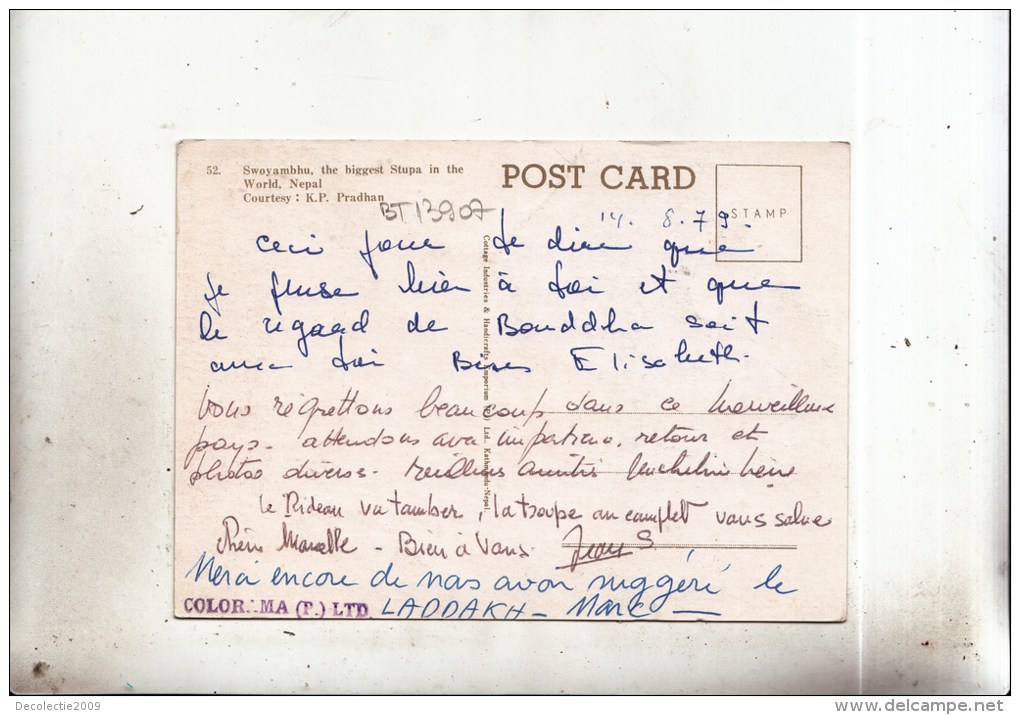 52. Swoyambhu, the biggest Stupa in the
World, Nepal
Courtesy : K.P. Pradhan
POST CARD
STAMP
BT13907
14. 8. 79.
Ceci pour te dire que
je pense bien à toi et que
le regard de Bouddha soit
avec toi Bises Elisabeth.
Cottage Industries & Handicrafts Emporium Ltd., Kathmandu-Nepal.
Vous regrettons beaucoup dans ce merveilleux
pays. attendons avec impatience, retour et
photos diverses. meilleures amitiés
le Rideau va tomber, la troupe au complet vous salue
Marcelle - Bien à Vous. Jean
Merci encore de nous avoir suggéré le
LADDAKH - Marc
COLORAMA (P.) LTD.
Decolectie2009
www.delcampe.net